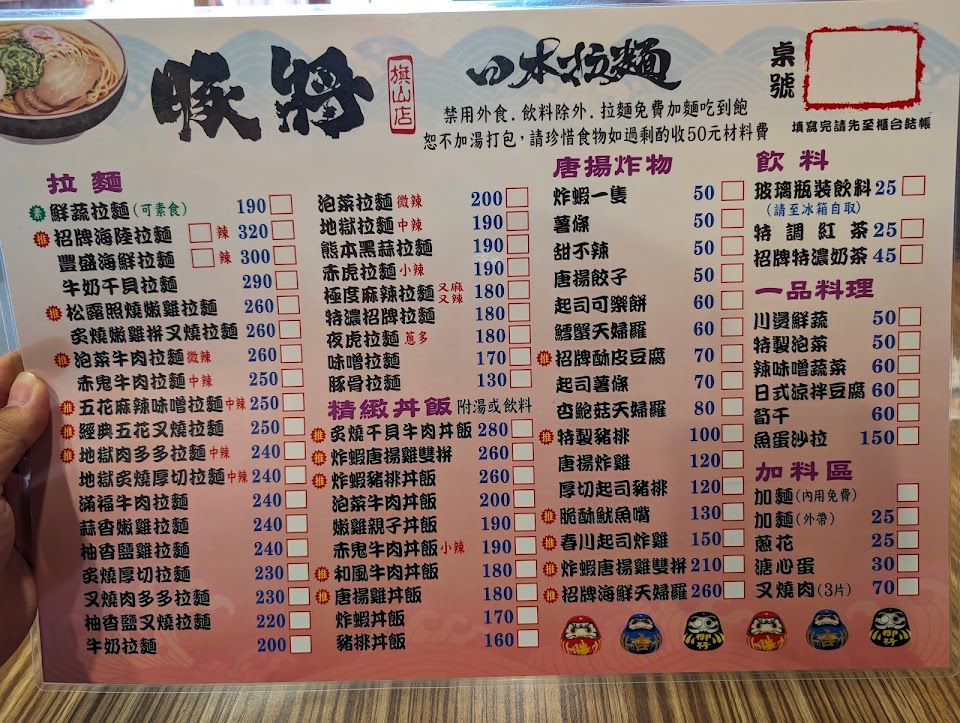 豚將
旗山店
日本拉麵
桌號
禁用外食.飲料除外.拉麵免費加麵吃到飽
恕不加湯打包，請珍惜食物如過剩酌收50元材料費
填寫完請先至櫃台結帳
拉麵
素 鮮蔬拉麵(可素食) 190
推 招牌海陸拉麵 辣 320
豐盛海鮮拉麵 辣 300
牛奶干貝拉麵 290
推 松露照燒嫩雞拉麵 260
炙燒嫩雞拼叉燒拉麵 260
推 泡菜牛肉拉麵 微辣 260
赤鬼牛肉拉麵 中辣 250
推 五花麻辣味噌拉麵 中辣 250
推 經典五花叉燒拉麵 250
推 地獄肉多多拉麵 中辣 240
地獄炙燒厚切拉麵 中辣 240
滿福牛肉拉麵 240
蒜香嫩雞拉麵 240
柚香鹽雞拉麵 240
炙燒厚切拉麵 230
叉燒肉多多拉麵 230
柚香鹽叉燒拉麵 220
牛奶拉麵 200
泡菜拉麵 微辣 200
地獄拉麵 中辣 190
熊本黑蒜拉麵 190
赤虎拉麵 小辣 190
極度麻辣拉麵 又麻又辣 180
特濃招牌拉麵 180
夜虎拉麵 蔥多 180
味噌拉麵 170
豚骨拉麵 130
精緻丼飯 附湯或飲料
推 炙燒干貝牛肉丼飯 280
推 炸蝦唐揚雞雙拼 260
推 炸蝦豬排丼飯 260
泡菜牛肉丼飯 200
嫩雞親子丼飯 190
赤鬼牛肉丼飯 小辣 190
推 和風牛肉丼飯 180
推 唐揚雞丼飯 180
炸蝦丼飯 170
豬排丼飯 160
唐揚炸物
炸蝦一隻 50
薯條 50
甜不辣 50
唐揚餃子 50
起司可樂餅 60
鱈蟹天婦羅 60
推 招牌酥皮豆腐 70
起司薯條 70
杏鮑菇天婦羅 80
推 特製豬排 100
唐揚炸雞 120
厚切起司豬排 120
推 脆酥魷魚嘴 130
推 春川起司炸雞 150
推 炸蝦唐揚雞雙拼 210
推 招牌海鮮天婦羅 260
飲料
玻璃瓶裝飲料 25
(請至冰箱自取)
特調紅茶 25
招牌特濃奶茶 45
一品料理
川燙鮮蔬 50
特製泡菜 50
辣味噌蔬菜 60
日式涼拌豆腐 60
筍干 60
魚蛋沙拉 150
加料區
加麵(內用免費)
加麵(外帶) 25
蔥花 25
溏心蛋 30
叉燒肉(3片) 70